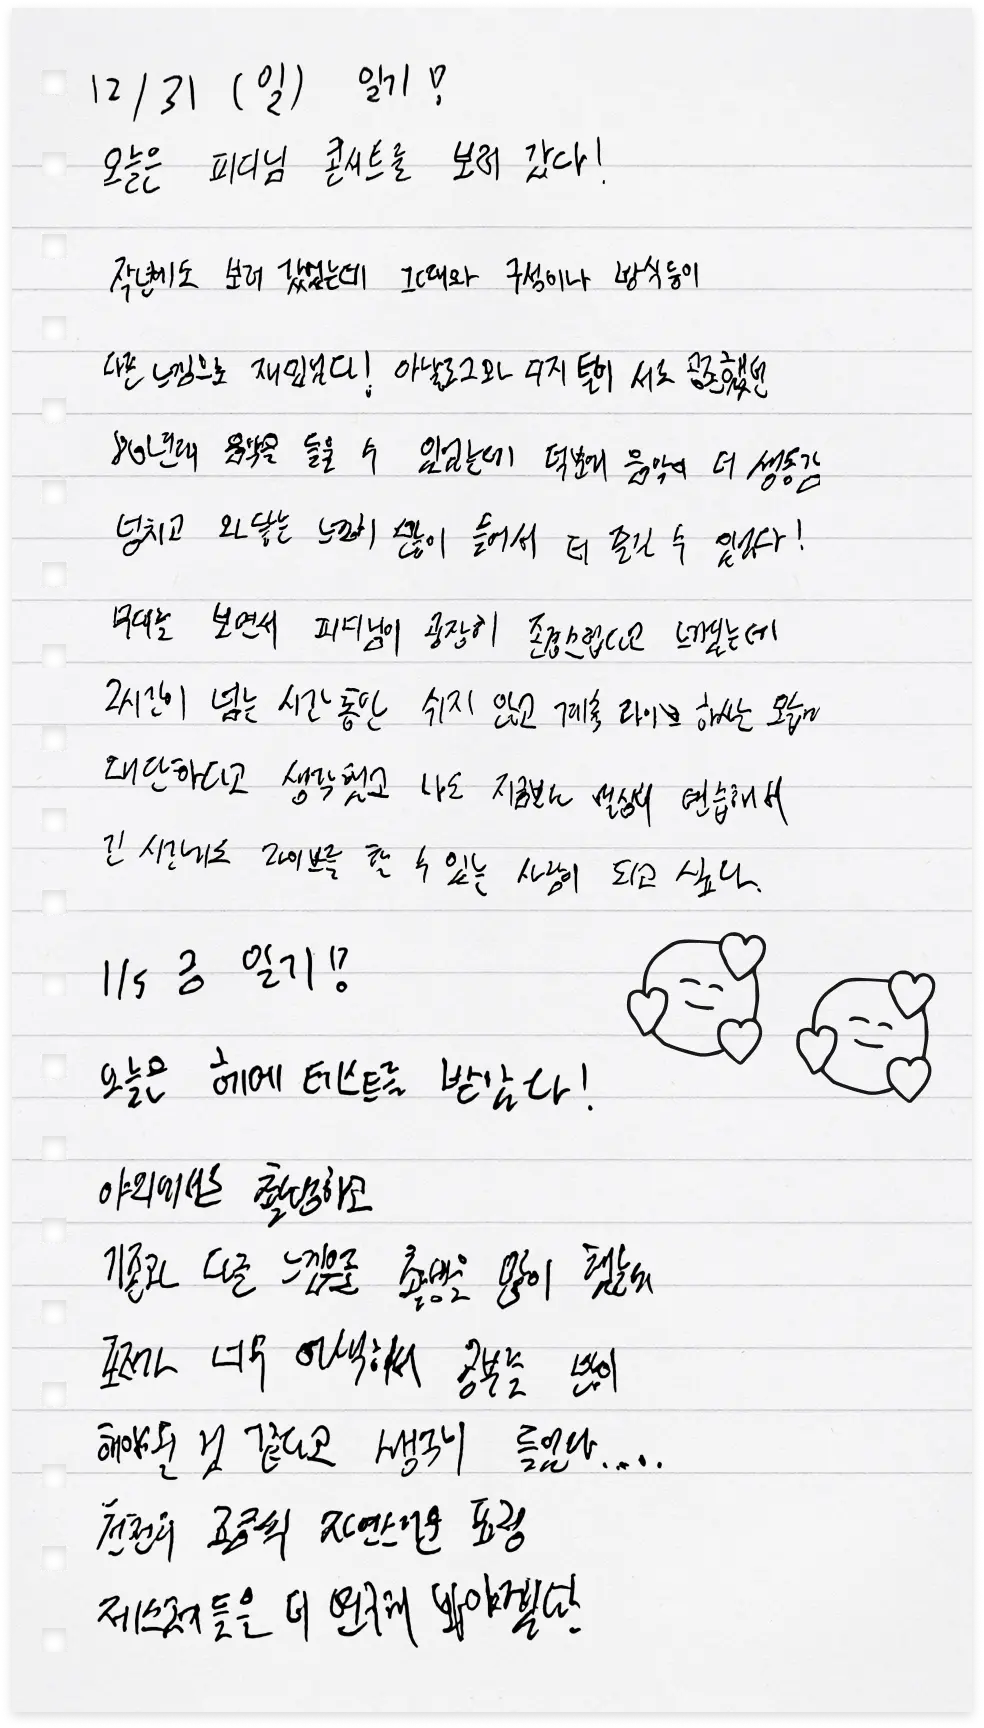 12/31 (일) 일기!
오늘은 피디님 콘서트를 보러 갔다!
작년에도 보러 갔었는데 그때와 구성이나 방식등이
다른 느낌으로 재밌었다! 아날로그와 디지털이 서로 공존했던
80년대 음악을 들을 수 있었는데 덕분에 음악이 더 생동감
넘치고 와닿는 느낌이 많이 들어서 더 즐길 수 있었다!
무대를 보면서 피디님이 굉장히 존경스럽다고 느꼈는데
2시간이 넘는 시간동안 쉬지 않고 계속 라이브 하시는 모습이
대단하다고 생각했고 나도 지금보다 열심히 연습해서
긴 시간에도 라이브를 할 수 있는 사람이 되고 싶다.
1/5 금 일기!
오늘은 헤메 테스트를 받았다!
야외에서도 촬영하고
기존과 다른 느낌으로 촬영을 많이 했는데
표정이 너무 어색해서 공부를 많이
해야될 것 같다고 생각이 들었다....
천천히 조금씩 자연스러운 표정
제스처들을 더 연구해 봐야겠다